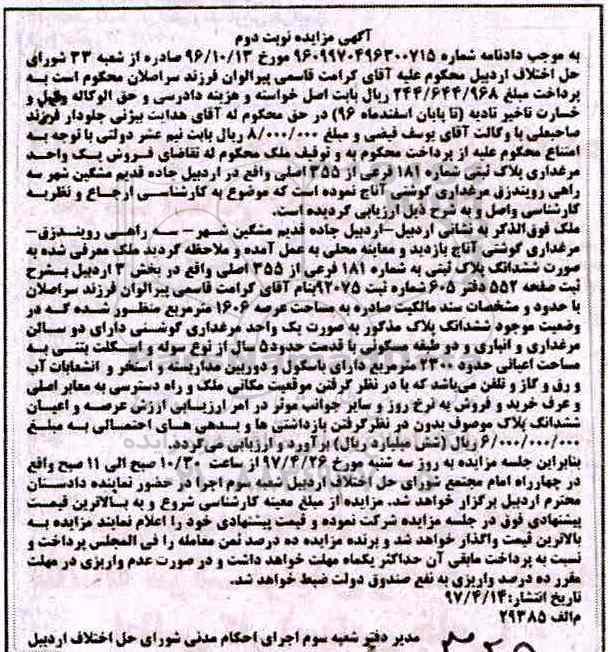 آگهی مزایده نوبت دوم
به موجب دادنامه شماره ۹۶۰۹۹۷۰۴۹۶۳۰۰۷۱۵ مورخ ۹۶/۱۰/۱۳ صادره از شعبه ۳۳ شورای
حل اختلاف اردبیل محکوم علیه آقای کرامت قاسمی پیرالوان فرزند سراصلان محکوم است به
پرداخت مبلغ ۲۴۴/۶۴۴/۹۶۸ ریال بابت اصل خواسته و هزینه دادرسی و حق الوکاله وکیل و
خسارت تاخیر تادیه (تا پایان اسفندماه ۹۶) در حق محکوم له آقای هدایت بیژنی جلودار فرزند
صاحبعلی با وکالت آقای یوسف فیضی و مبلغ ۸/۰۰۰/۰۰۰ ریال بابت نیم عشر دولتی با توجه به
امتناع محکوم علیه از پرداخت محکوم به و توقیف ملک محکوم له تقاضای فروش یک واحد
مرغداری پلاک ثبتی شماره ۱۸۱ فرعی از ۳۵۵ اصلی واقع در اردبیل جاده قدیم مشگین شهر سه
راهی رویندزق مرغداری گوشتی آناج نموده است که موضوع به کارشناسی ارجاع و نظریه
کارشناسی واصل و به شرح ذیل ارزیابی گردیده است.
ملک فوق‌الذکر به نشانی اردبیل-اردبیل جاده قدیم مشگین شهر – سه راهی رویندزق-
مرغداری گوشتی آناج بازدید و معاینه محلی به عمل آمده و ملاحظه گردید ملک معرفی شده به
صورت ششدانگ پلاک ثبتی به شماره ۱۸۱ فرعی از ۳۵۵ اصلی واقع در بخش ۳ اردبیل بشرح
ثبت صفحه ۵۵۲ دفتر ۶۰۵ شماره ثبت ۹۲۰۷۵ بنام آقای کرامت قاسمی پیرالوان فرزند سراصلان
با حدود و مشخصات سند مالکیت صادره به مساحت عرصه ۱۶۰۶ مترمربع منظور شده که در
وضعیت موجود ششدانگ پلاک مذکور به صورت یک واحد مرغداری گوشتی دارای دو سالن
مرغداری و انباری و دو طبقه مسکونی با قدمت حدود ۵ سال از نوع سوله و اسکلت بتنی به
مساحت اعیانی حدود ۲۳۰۰ مترمربع دارای باسکول و دوربین مداربسته و استخر و انشعابات آب
و برق و گاز و تلفن می‌باشد که با در نظر گرفتن موقعیت مکانی ملک و راه دسترسی به معابر اصلی
و عرف خرید و فروش به نرخ روز و سایر جوانب موثر در امر ارزیابی ارزش عرصه و اعیان
ششدانگ پلاک موصوف بدون در نظرگرفتن بازداشتی ها و بدهی های احتمالی به مبلغ
۶/۰۰۰/۰۰۰/۰۰۰ ریال (شش میلیارد ریال) برآورد و ارزیابی می‌گردد.
بنابراین جلسه مزایده به روز سه شنبه مورخ ۹۷/۴/۲۶ از ساعت ۱۰/۳۰ صبح الی ۱۱ صبح واقع
در چهارراه امام مجتمع شورای حل اختلاف اردبیل شعبه سوم اجرا در حضور نماینده دادستان
محترم اردبیل برگزار خواهد شد. مزایده از مبلغ معینه کارشناسی شروع و به بالاترین قیمت
پیشنهادی فوق در جلسه مزایده شرکت نموده و قیمت پیشنهادی خود را اعلام نمایند مزایده به
بالاترین قیمت واگذار خواهد شد و برنده مزایده ده درصد ثمن معامله را فی المجلس پرداخت و
نسبت به پرداخت مابقی آن حداکثر یکماه مهلت خواهد داشت و در صورت عدم واریزی در مهلت
مقرر ده درصد واریزی به نفع صندوق دولت ضبط خواهد شد.
تاریخ انتشار: ۹۷/۴/۱۴
م‌الف ۲۹۳۸۵
مدیر دفتر شعبه سوم اجرای احکام مدنی شورای حل اختلاف اردبیل